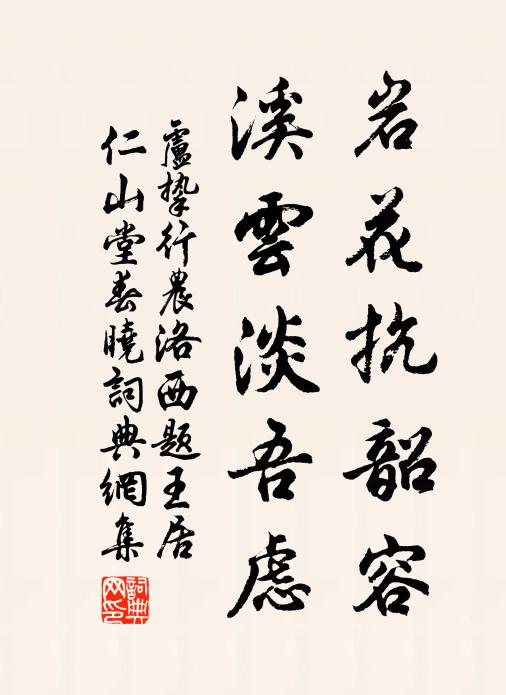 岩花抗韶容
溪雲淡吾慮
盧摯行農洛西題王居
仁山堂春曉詞典網集
詞典網印